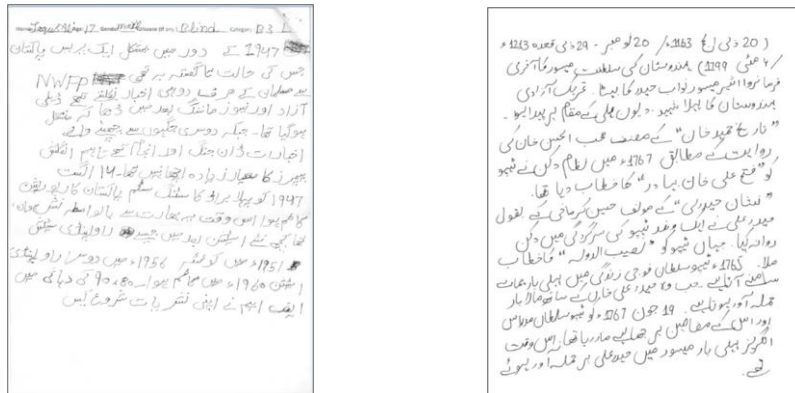 Name: Age: 17 Gender: male Disease (If any): Blind Category: B3 L
1947ء کے دور میں مشکل ایک پریس پاکستان
جس کی حالت ناگفتہ بہ تھی NWFP
سے مسلمان کے صرف دو ہی اخبار نکلتے تھے ڈیلی
آزاد اور نیوز مارننگ بعد میں ڈھاکہ منتقل
ہوگیا تھا۔ جبکہ دوسری جگہوں سے چھپنے والے
اخبارات ڈان جنگ اور انجام تھے تاہم انگلش
پیپرز کا معیار زیادہ اچھا نہیں تھا۔ 14 اگست
1947 کو پہلا براڈ کاسٹنگ سسٹم پاکستان کا ریڈیو
قائم ہوا اس وقت یہ بھارت سے بالواسطہ نشر
تھا کچھ نئے اسٹیشن بعد میں جیسے راولپنڈی سٹیشن
1951ء میں کوئٹہ 1956ء میں دوسرا راولپنڈی
اسٹیشن 1960ء میں قائم ہوا۔ 80ء 90 کی دہائی میں
ایف ایم نے اپنی نشریات شروع کیں
(20 ذی الحج 1163ء/ 20 نومبر - 29 ذی قعدہ 1213ء
مئی 1799) ہندوستان کی سلطنت میسور کا آخری
فرمانروا میسور نواب حیدر کا بیٹا۔ تحریک آزادی
ہندوستان کا پہلا ٹیپو۔ کے مقام پر پیدا ہوا۔
"تاریخ" کے مصنف محب الحسن خان کی
روایت کے مطابق 1767ء میں نظام دکن نے ٹیپو
کو "فتح علی خان بہادر" کا خطاب دیا تھا۔
"نشان حیدری" کے مولف حسین کرمانی کے بقول
حیدر علی نے ایک وفد ٹیپو کی سرکردگی میں دکن
روانہ کیا۔ جہاں ٹیپو کو "نصیب الدولہ" کا خطاب
ملا۔ 1765ء ٹیپو سلطان فوجی زندگی میں پہلی بار ہمارے
سامنے آتا ہے۔ جب وہ حیدر علی کے ساتھ مالابار
حملہ آور ہوتا ہے۔ 19 جون 1767ء کو ٹیپو سلطان مدراس
اور اس کے مضافات پر چھاپے مار رہا تھا۔ اس وقت
انگریز پہلی بار میسور میں حیدر علی پر حملہ آور ہوئے
تھے۔